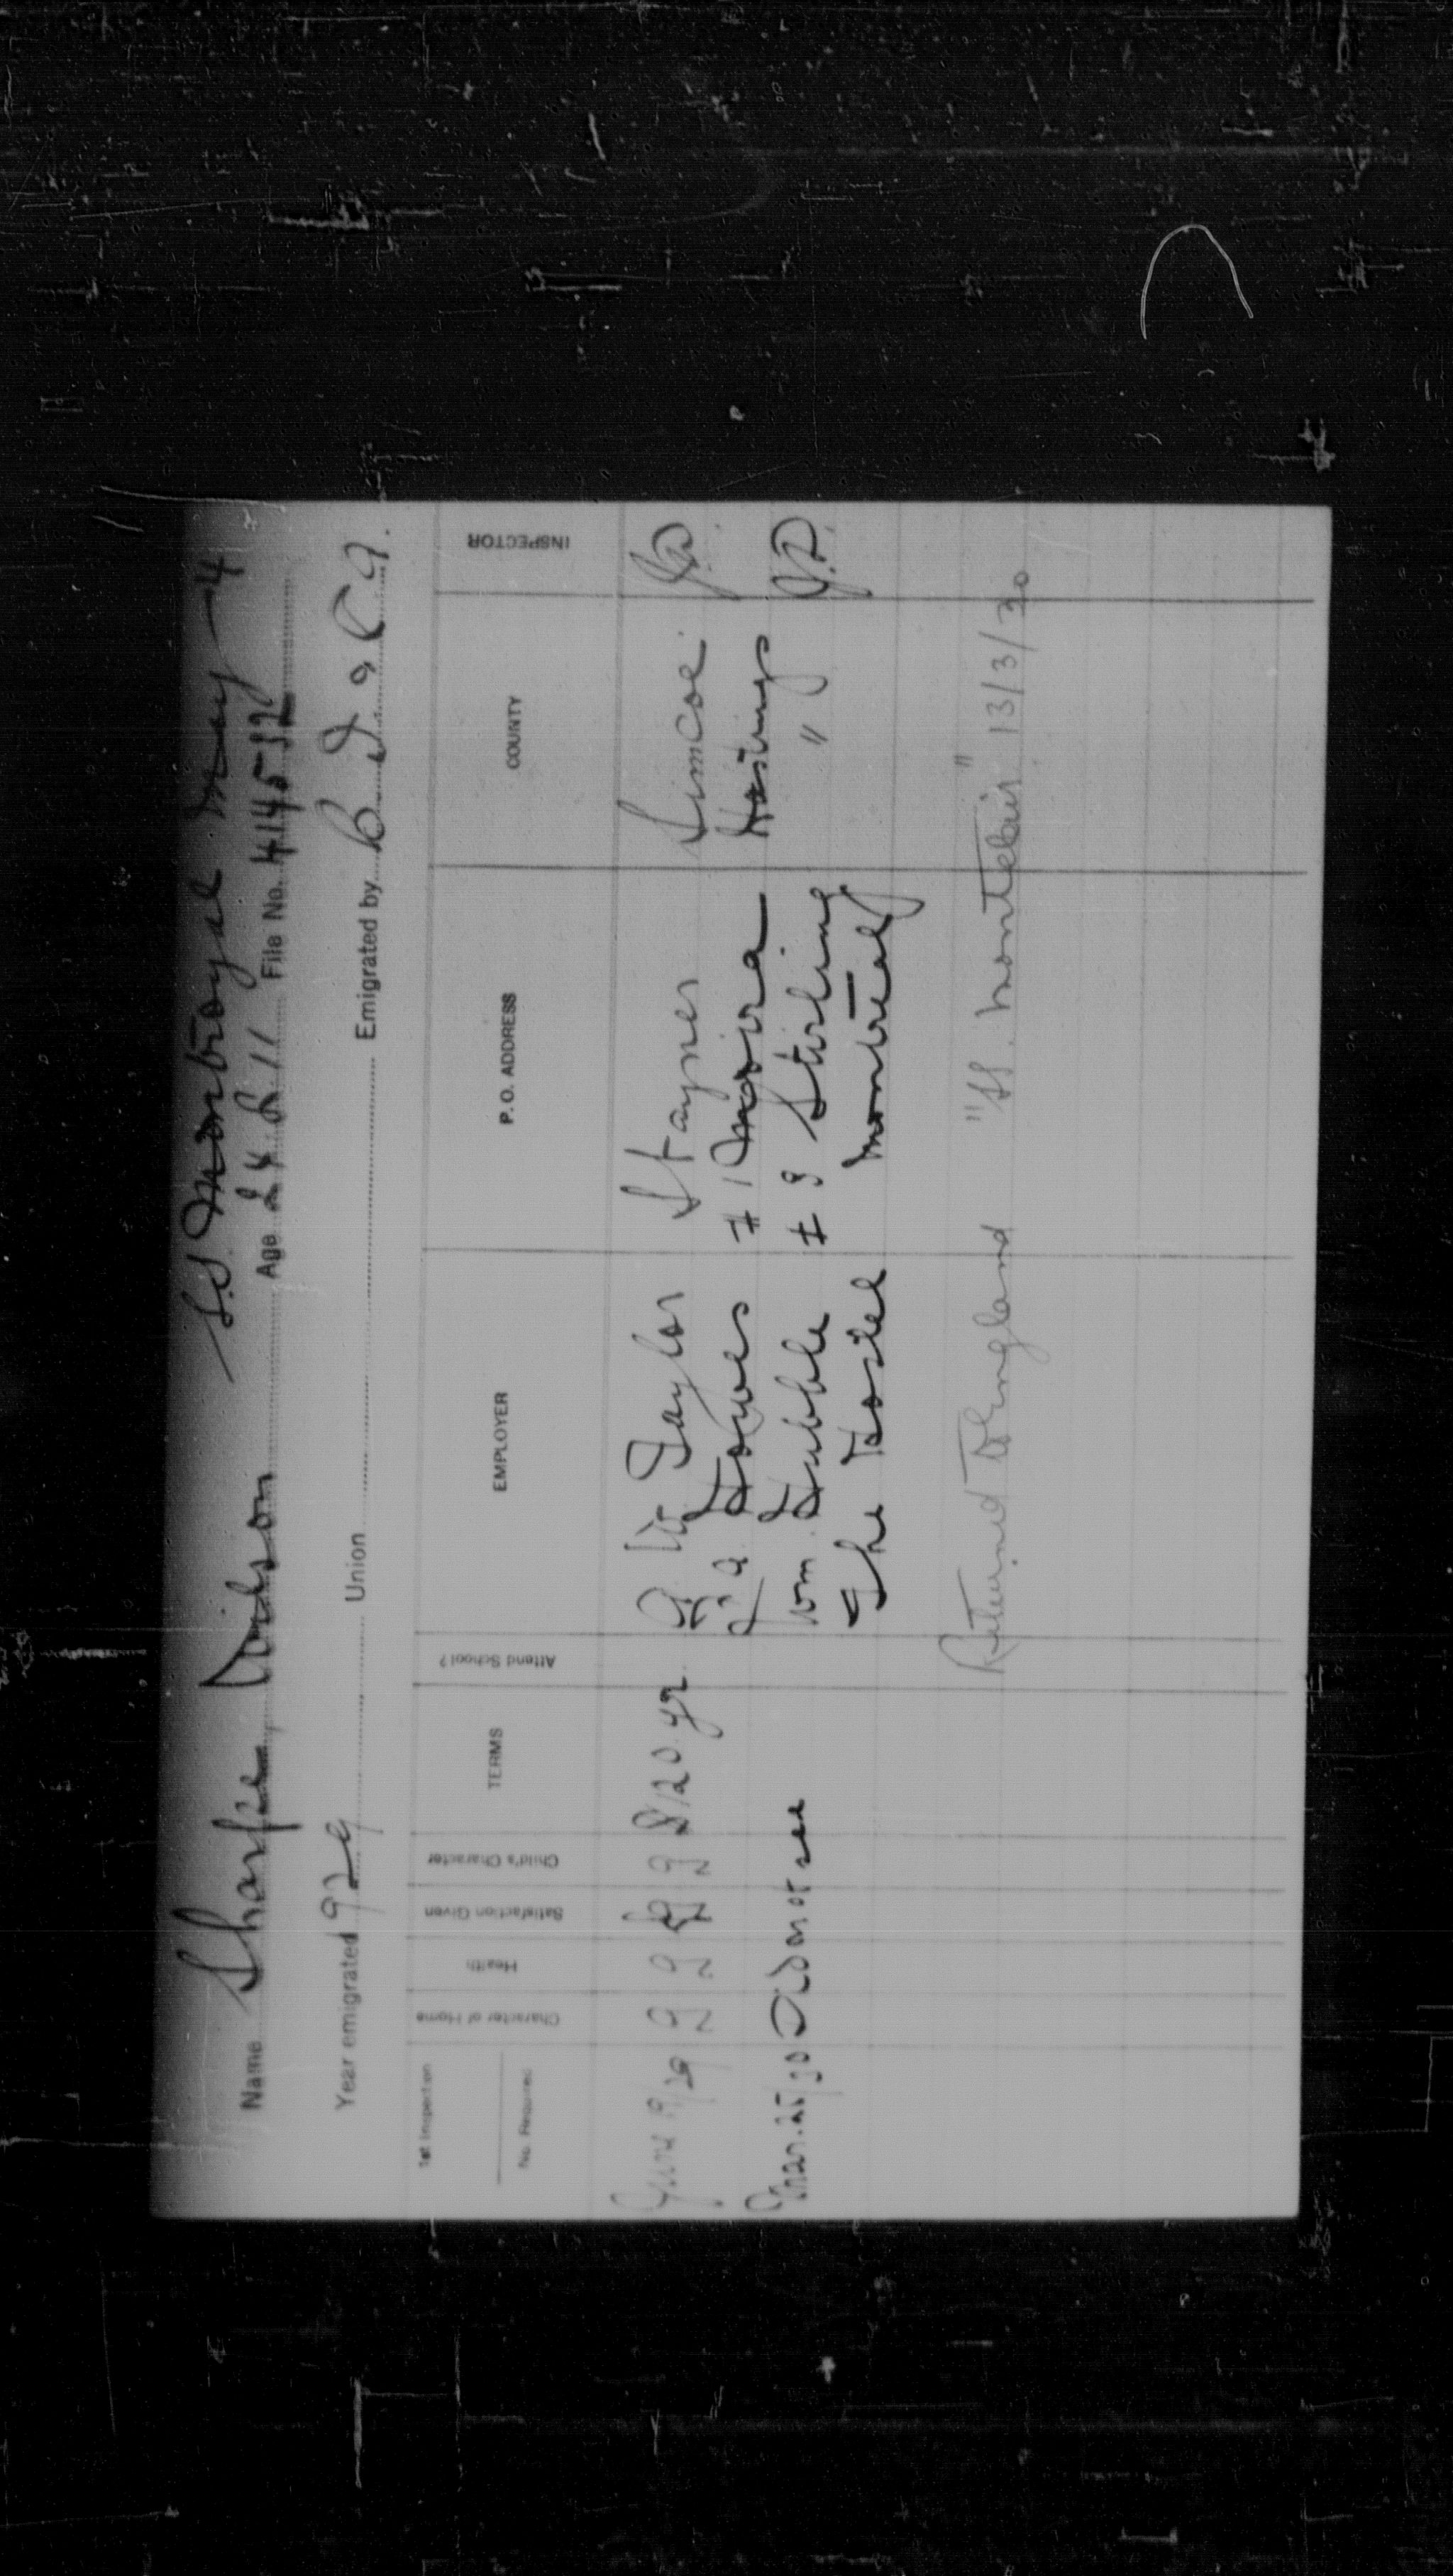 S.S. Montroyal May - 4
Name Sharpe, Doidson Age 24 5 11 File No. 414532
Year emigrated 929 Union Emigrated by B I & C A.
1st Inspection No. Required Character of Home Health Satisfaction Given Child's Character TERMS Attend School? EMPLOYER P. O. ADDRESS COUNTY INSPECTOR
June 19/29 g g g g $120 yr. R W Taylor Stayner Simcoe J.D.
Fowes #1 Moira Hastings
Mar. 25/30 Did not see Wm. Tubble #3 Stirling " J.D.
The Hostel Montreal
Returned to England "SS. Montclair" 13/3/30